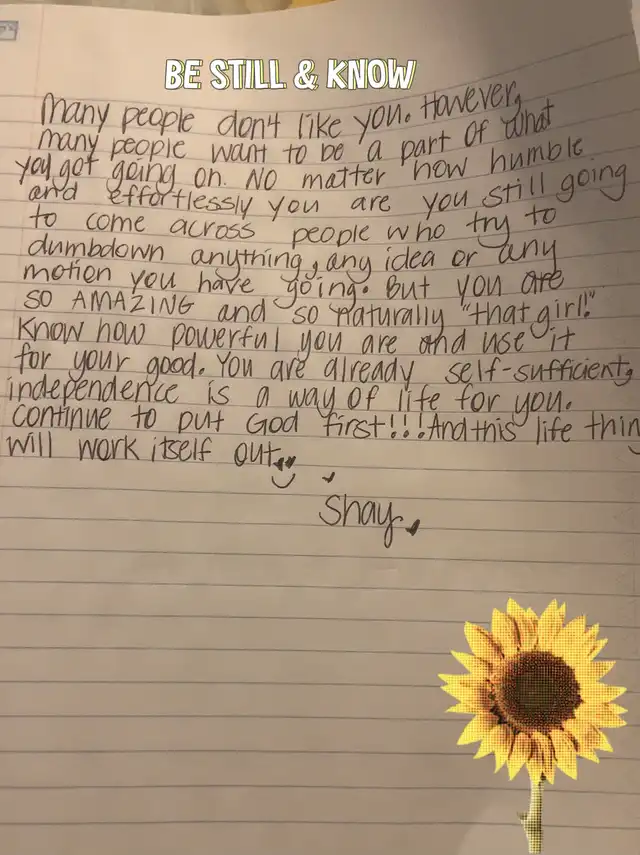 BE STILL & KNOW
Many people don't like you. However,
many people want to be a part of what
you got going on. NO matter how humble
and effortlessly you are you still going
to come across people who try to
dumbdown anything, any idea or any
motion you have going. But you are
SO AMAZING and so naturally "that girl!"
Know how powerful you are and use it
for your good. You are already self-sufficient,
independence is a way of life for you.
Continue to put God first!!! And this life thing
will work itself out
Shay